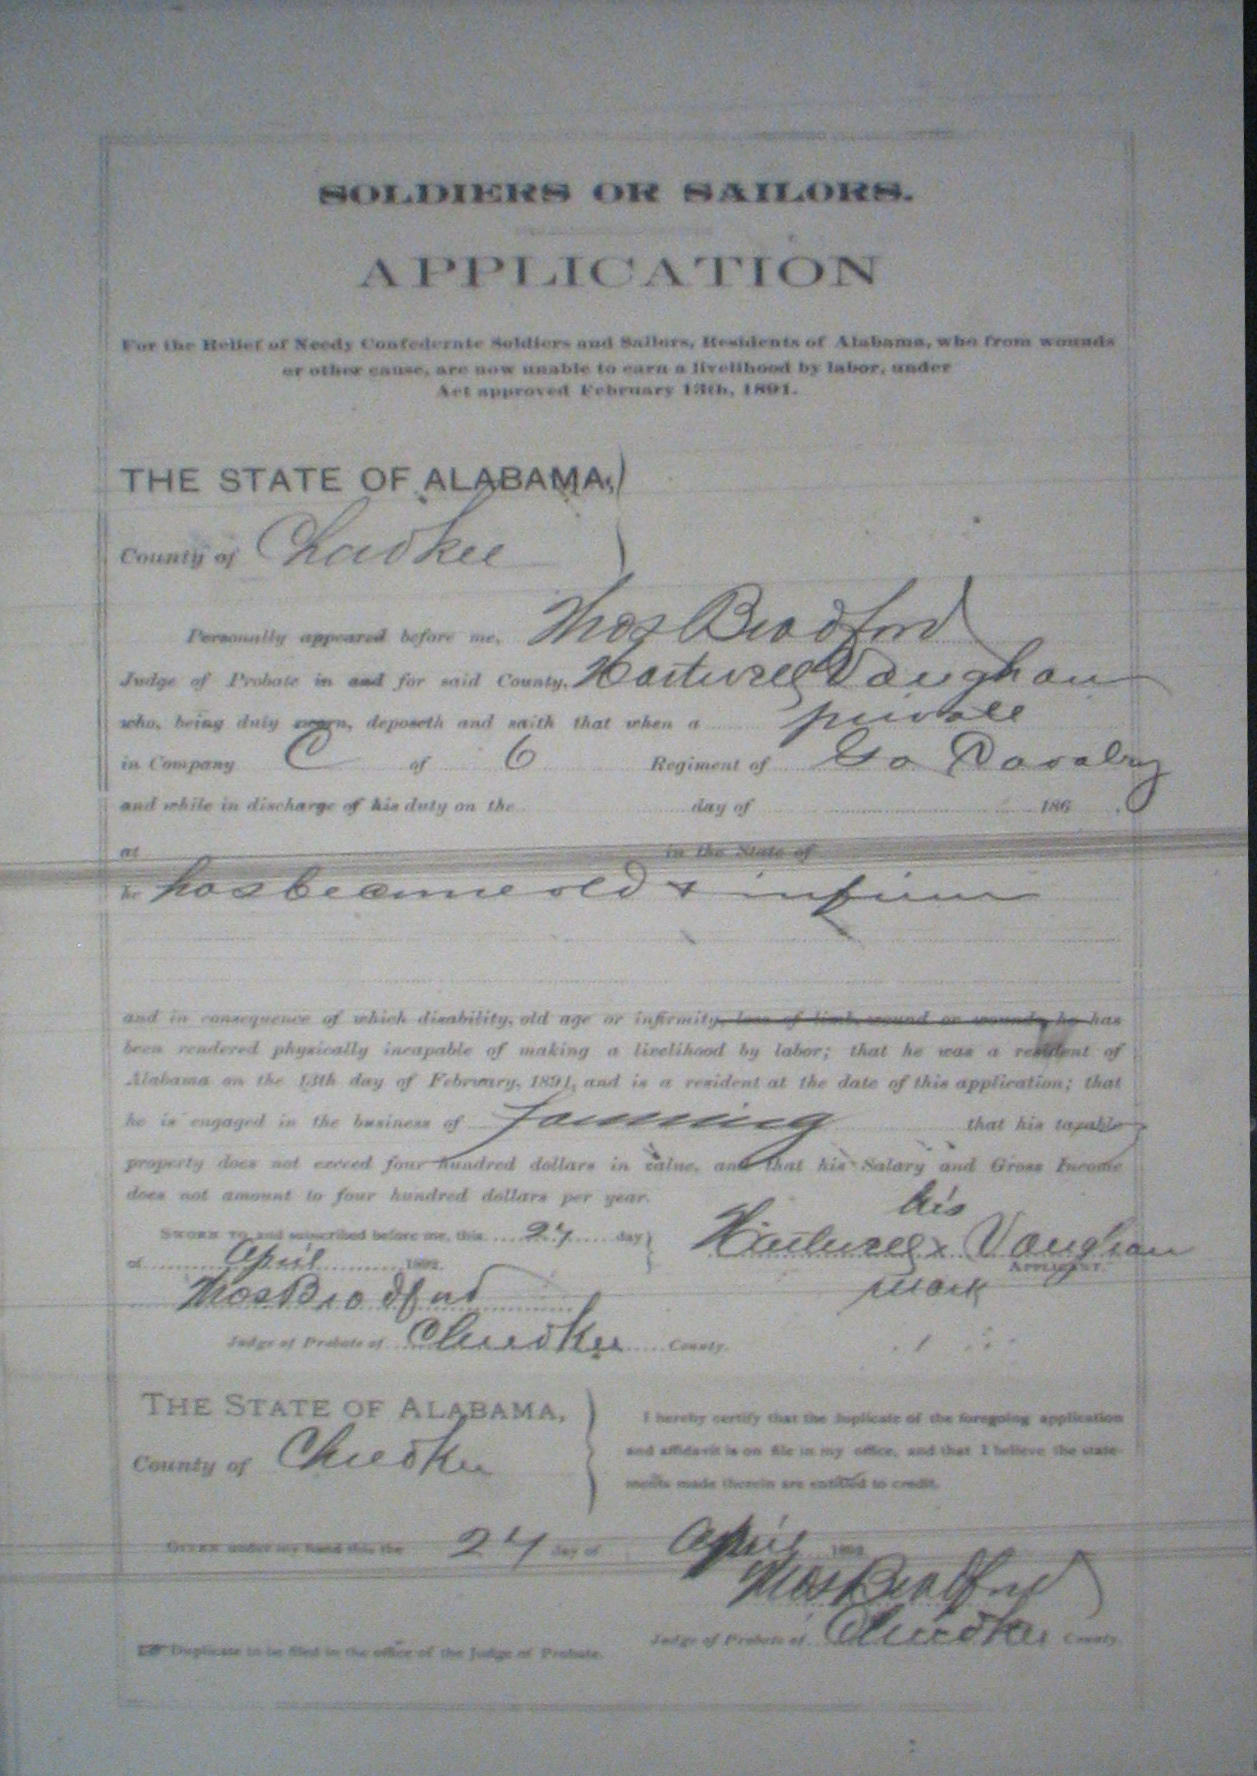 SOLDIERS OR SAILORS.
APPLICATION
For the Relief of Needy Confederate Soldiers and Sailors, Residents of Alabama, who from wounds
or other cause, are now unable to earn a livelihood by labor, under
Act approved February 13th, 1891.
THE STATE OF ALABAMA,
County of Cherokee
Personally appeared before me, Thos Bradford
Judge of Probate in and for said County, Hartwell Vaughan
who, being duly sworn, deposeth and saith that when a private
in Company C of 6 Regiment of Ga Cavalry
and while in discharge of his duty on the day of 186
at in the State of
he has became old & infirm
and in consequence of which disability, old age or infirmity, loss of limb, wound or wounds, he has
been rendered physically incapable of making a livelihood by labor; that he was a resident of
Alabama on the 13th day of February, 1891, and is a resident at the date of this application; that
he is engaged in the business of farming that his taxable
property does not exceed four hundred dollars in value, and that his Salary and Gross Income
does not amount to four hundred dollars per year.
his
SWORN TO and subscribed before me, this 27 day Hartwell x Vaughan
of April 1892. APPLICANT.
mark
Thos Bradford
Judge of Probate of Cherokee County.
THE STATE OF ALABAMA,
County of Cherokee
I hereby certify that the duplicate of the foregoing application
and affidavit is on file in my office, and that I believe the state-
ments made therein are entitled to credit.
GIVEN under my hand this the 27 day of April 1892
Thos Bradford
Judge of Probate of Cherokee County.
Duplicate to be filed in the office of the Judge of Probate.